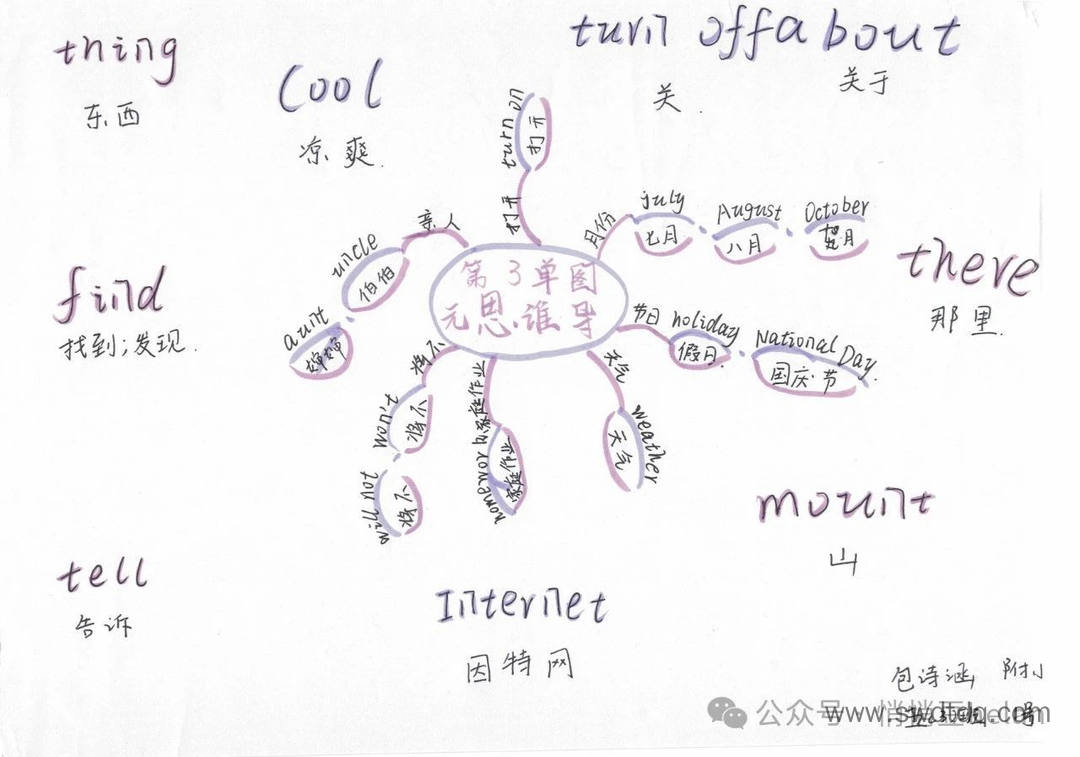 thing
东西
cool
凉爽.
turn off
关.
about
关于
find
找到;发现.
there
那里.
tell
告诉
mount
山
Internet
因特网
第3单图
元思.谁导
打开
turn on
打开
月份
july
七月
August
八月
October
月
节日
holiday
假日.
National Day.
国庆节
天气
weather
天气
家庭作业
homework
家庭作业
将不
won't
将不
will not
将不
亲人
uncle
伯伯
aunt
婶婶
包诗涵
附小
公众号